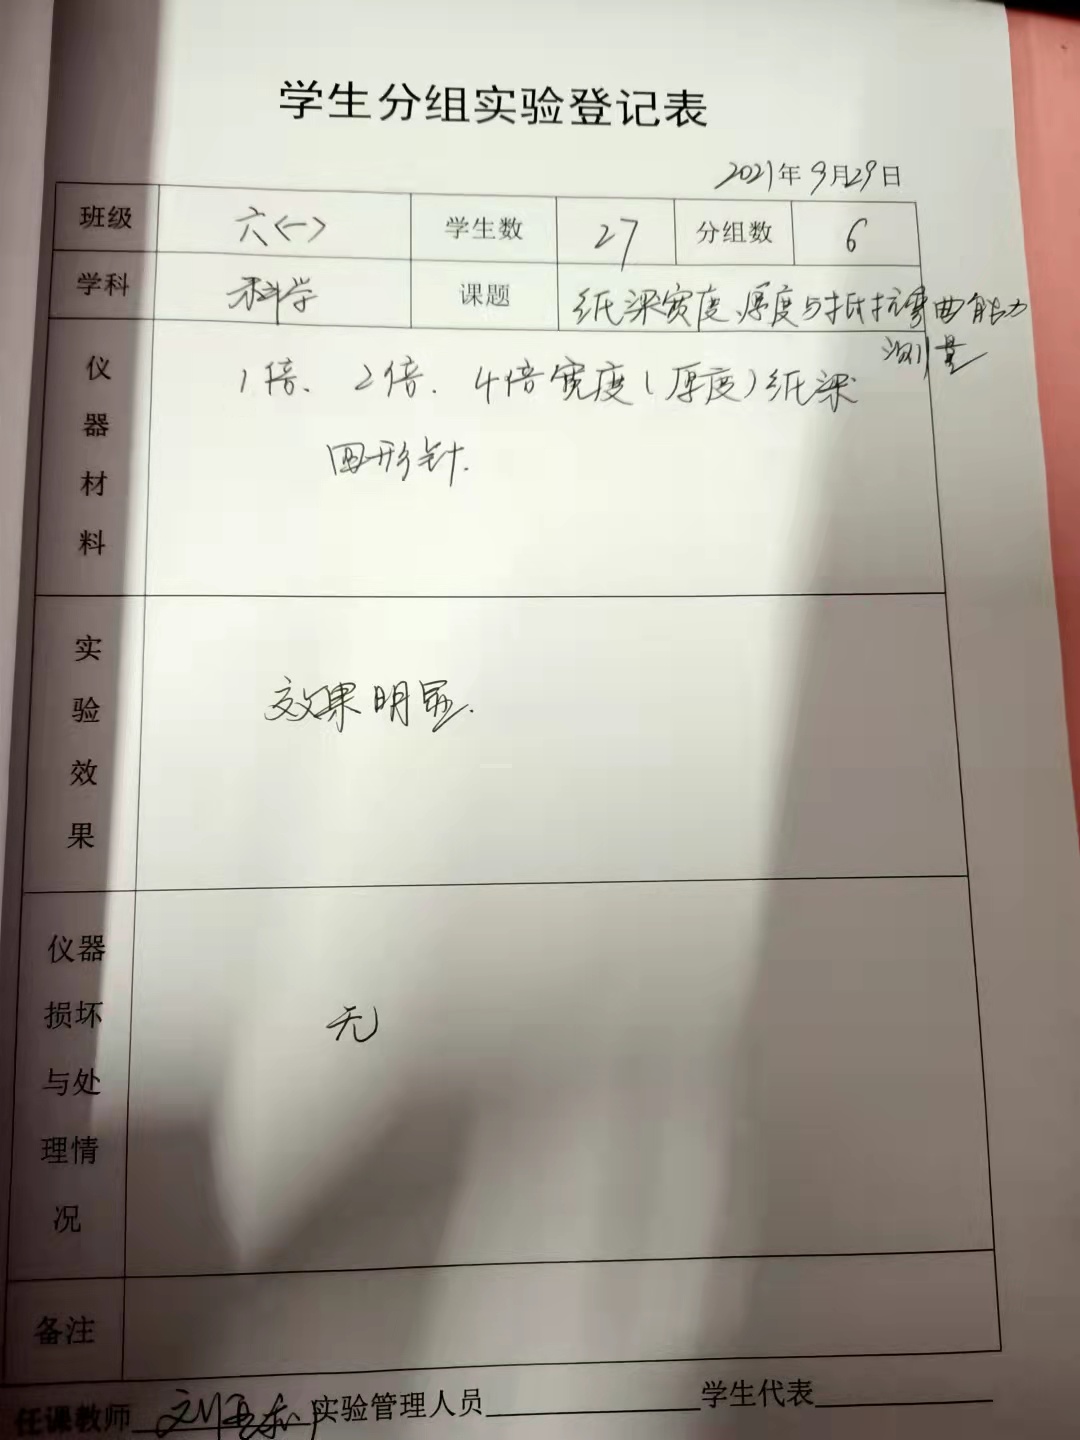 学生分组实验登记表
2021年9月29日
班级 六(一) 学生数 27 分组数 6
学科 科学 课题 纸梁宽度、厚度与抵抗弯曲能力
测量
仪器材料 1倍、2倍、4倍宽度(厚度)纸梁
回形针.
实验效果 效果明显.
仪器损坏与处理情况 无
备注
任课教师 实验管理人员 学生代表